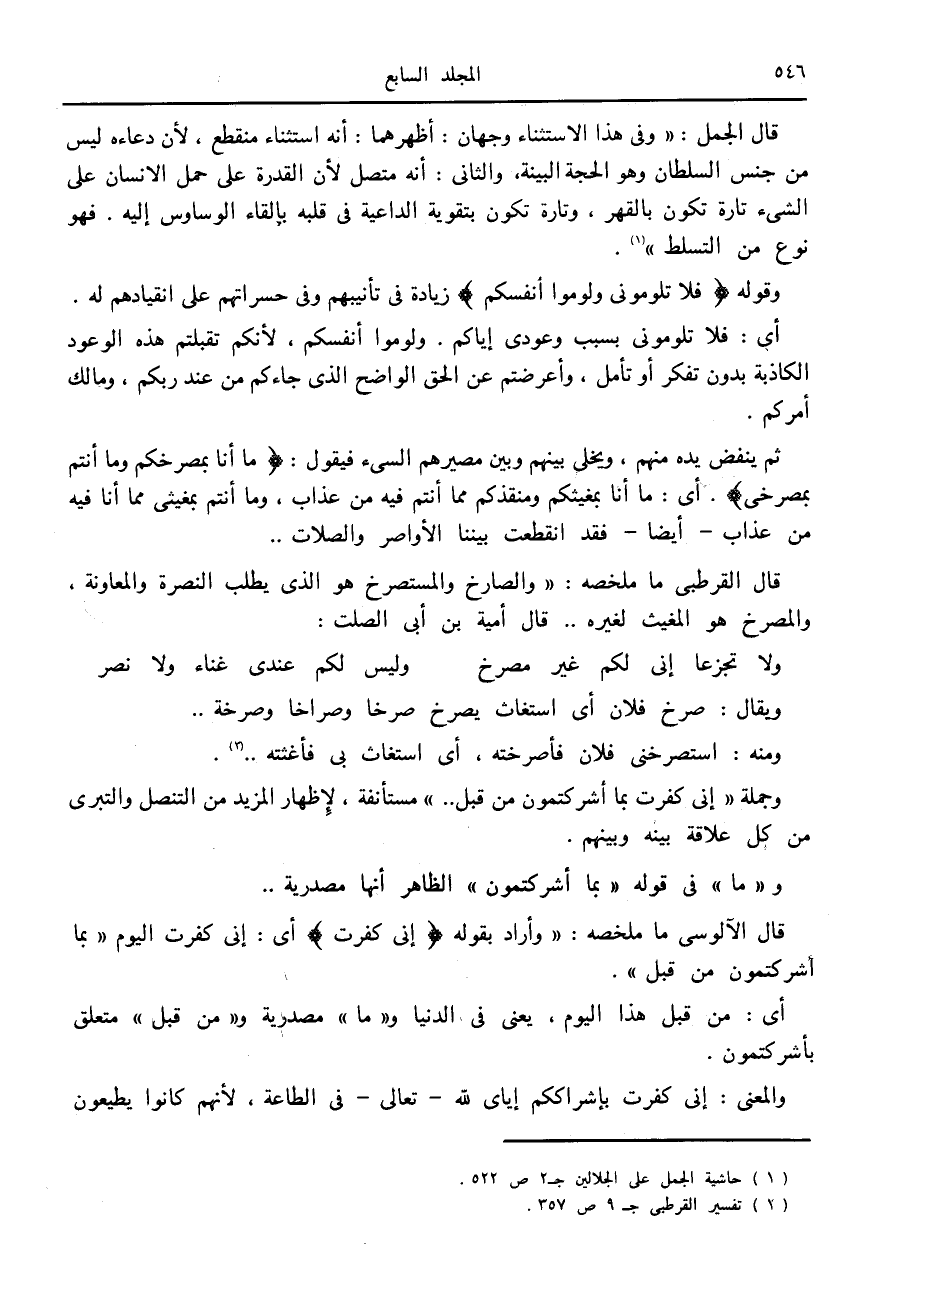 ٥٤٦ المجلد السابع
قال الجمل : « وفى هذا الاستثناء وجهان : أظهرهما : أنه استثناء منقطع ، لأن دعاءه ليس
من جنس السلطان وهو الحجة البينة، والثانى : أنه متصل لأن القدرة على حمل الانسان على
الشىء تارة تكون بالقهر ، وتارة تكون بتقوية الداعية فى قلبه بإلقاء الوساوس إليه . فهو
نوع من التسلط »(١) .
وقوله ﴿ فلا تلومونى ولوموا أنفسكم ﴾ زيادة فى تأنيبهم وفى حسراتهم على انقيادهم له .
أي : فلا تلومونى بسبب وعودى إياكم . ولوموا أنفسكم ، لأنكم تقبلتم هذه الوعود
الكاذبة بدون تفكر أو تأمل ، وأعرضتم عن الحق الواضح الذى جاءكم من عند ربكم ، ومالك
أمركم .
ثم ينفض يده منهم ، ويخلي بينهم وبين مصيرهم السىء فيقول : ﴿ ما أنا بمصرخكم وما أنتم
بمصرخى﴾ . أى : ما أنا بمغيثكم ومنقذكم مما أنتم فيه من عذاب ، وما أنتم بمغيثى مما أنا فيه
من عذاب – أيضا – فقد انقطعت بيننا الأواصر والصلات ..
قال القرطبى ما ملخصه : « والصارخ والمستصرخ هو الذى يطلب النصرة والمعاونة ،
والمصرخ هو المغيث لغيره .. قال أمية بن أبى الصلت :
ولا تجزعا إنى لكم غير مصرخ وليس لكم عندى غناء ولا نصر
ويقال : صرخ فلان أى استغاث يصرخ صرخا وصراخا وصرخة ..
ومنه : استصرخنى فلان فأصرخته ، أى استغاث بى فأغثته ..(٢) .
وجملة « إنى كفرت بما أشركتمون من قبل.. » مستأنفة ، لإظهار المزيد من التنصل والتبرى
من كل علاقة بينه وبينهم .
و « ما » فى قوله « بما أشركتمون » الظاهر أنها مصدرية ..
قال الآلوسى ما ملخصه : « وأراد بقوله ﴿ إنى كفرت ﴾ أى : إنى كفرت اليوم « بما
أشركتمون من قبل » .
أى : من قبل هذا اليوم ، يعنى فى الدنيا و« ما » مصدرية و« من قبل » متعلق
بأشركتمون .
والمعنى : إنى كفرت بإشراككم إياى لله – تعالى – فى الطاعة ، لأنهم كانوا يطيعون
( ١ ) حاشية الجمل على الجلالين جـ٢ ص ٥٢٢ .
( ٢ ) تفسير القرطبى جـ ٩ ص ٣٥٧ .